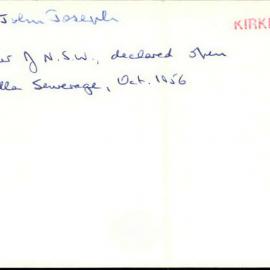 John Joseph
KIRK
er of N.S.W., declared open
lla Sewerage, Oct. 1956